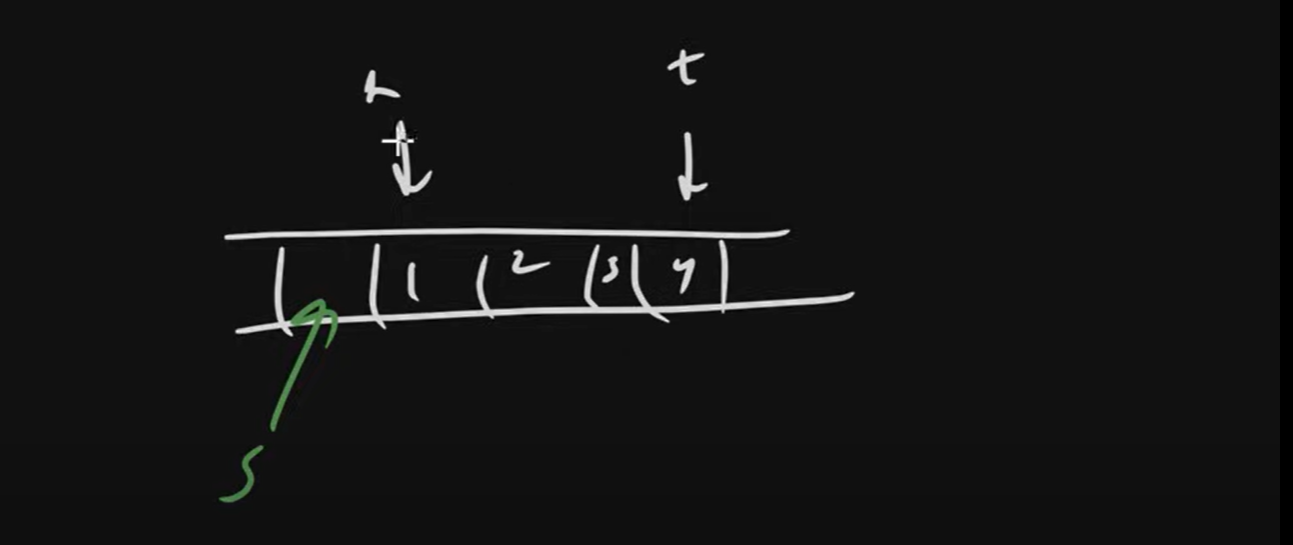 h t
1 2 3 4
5